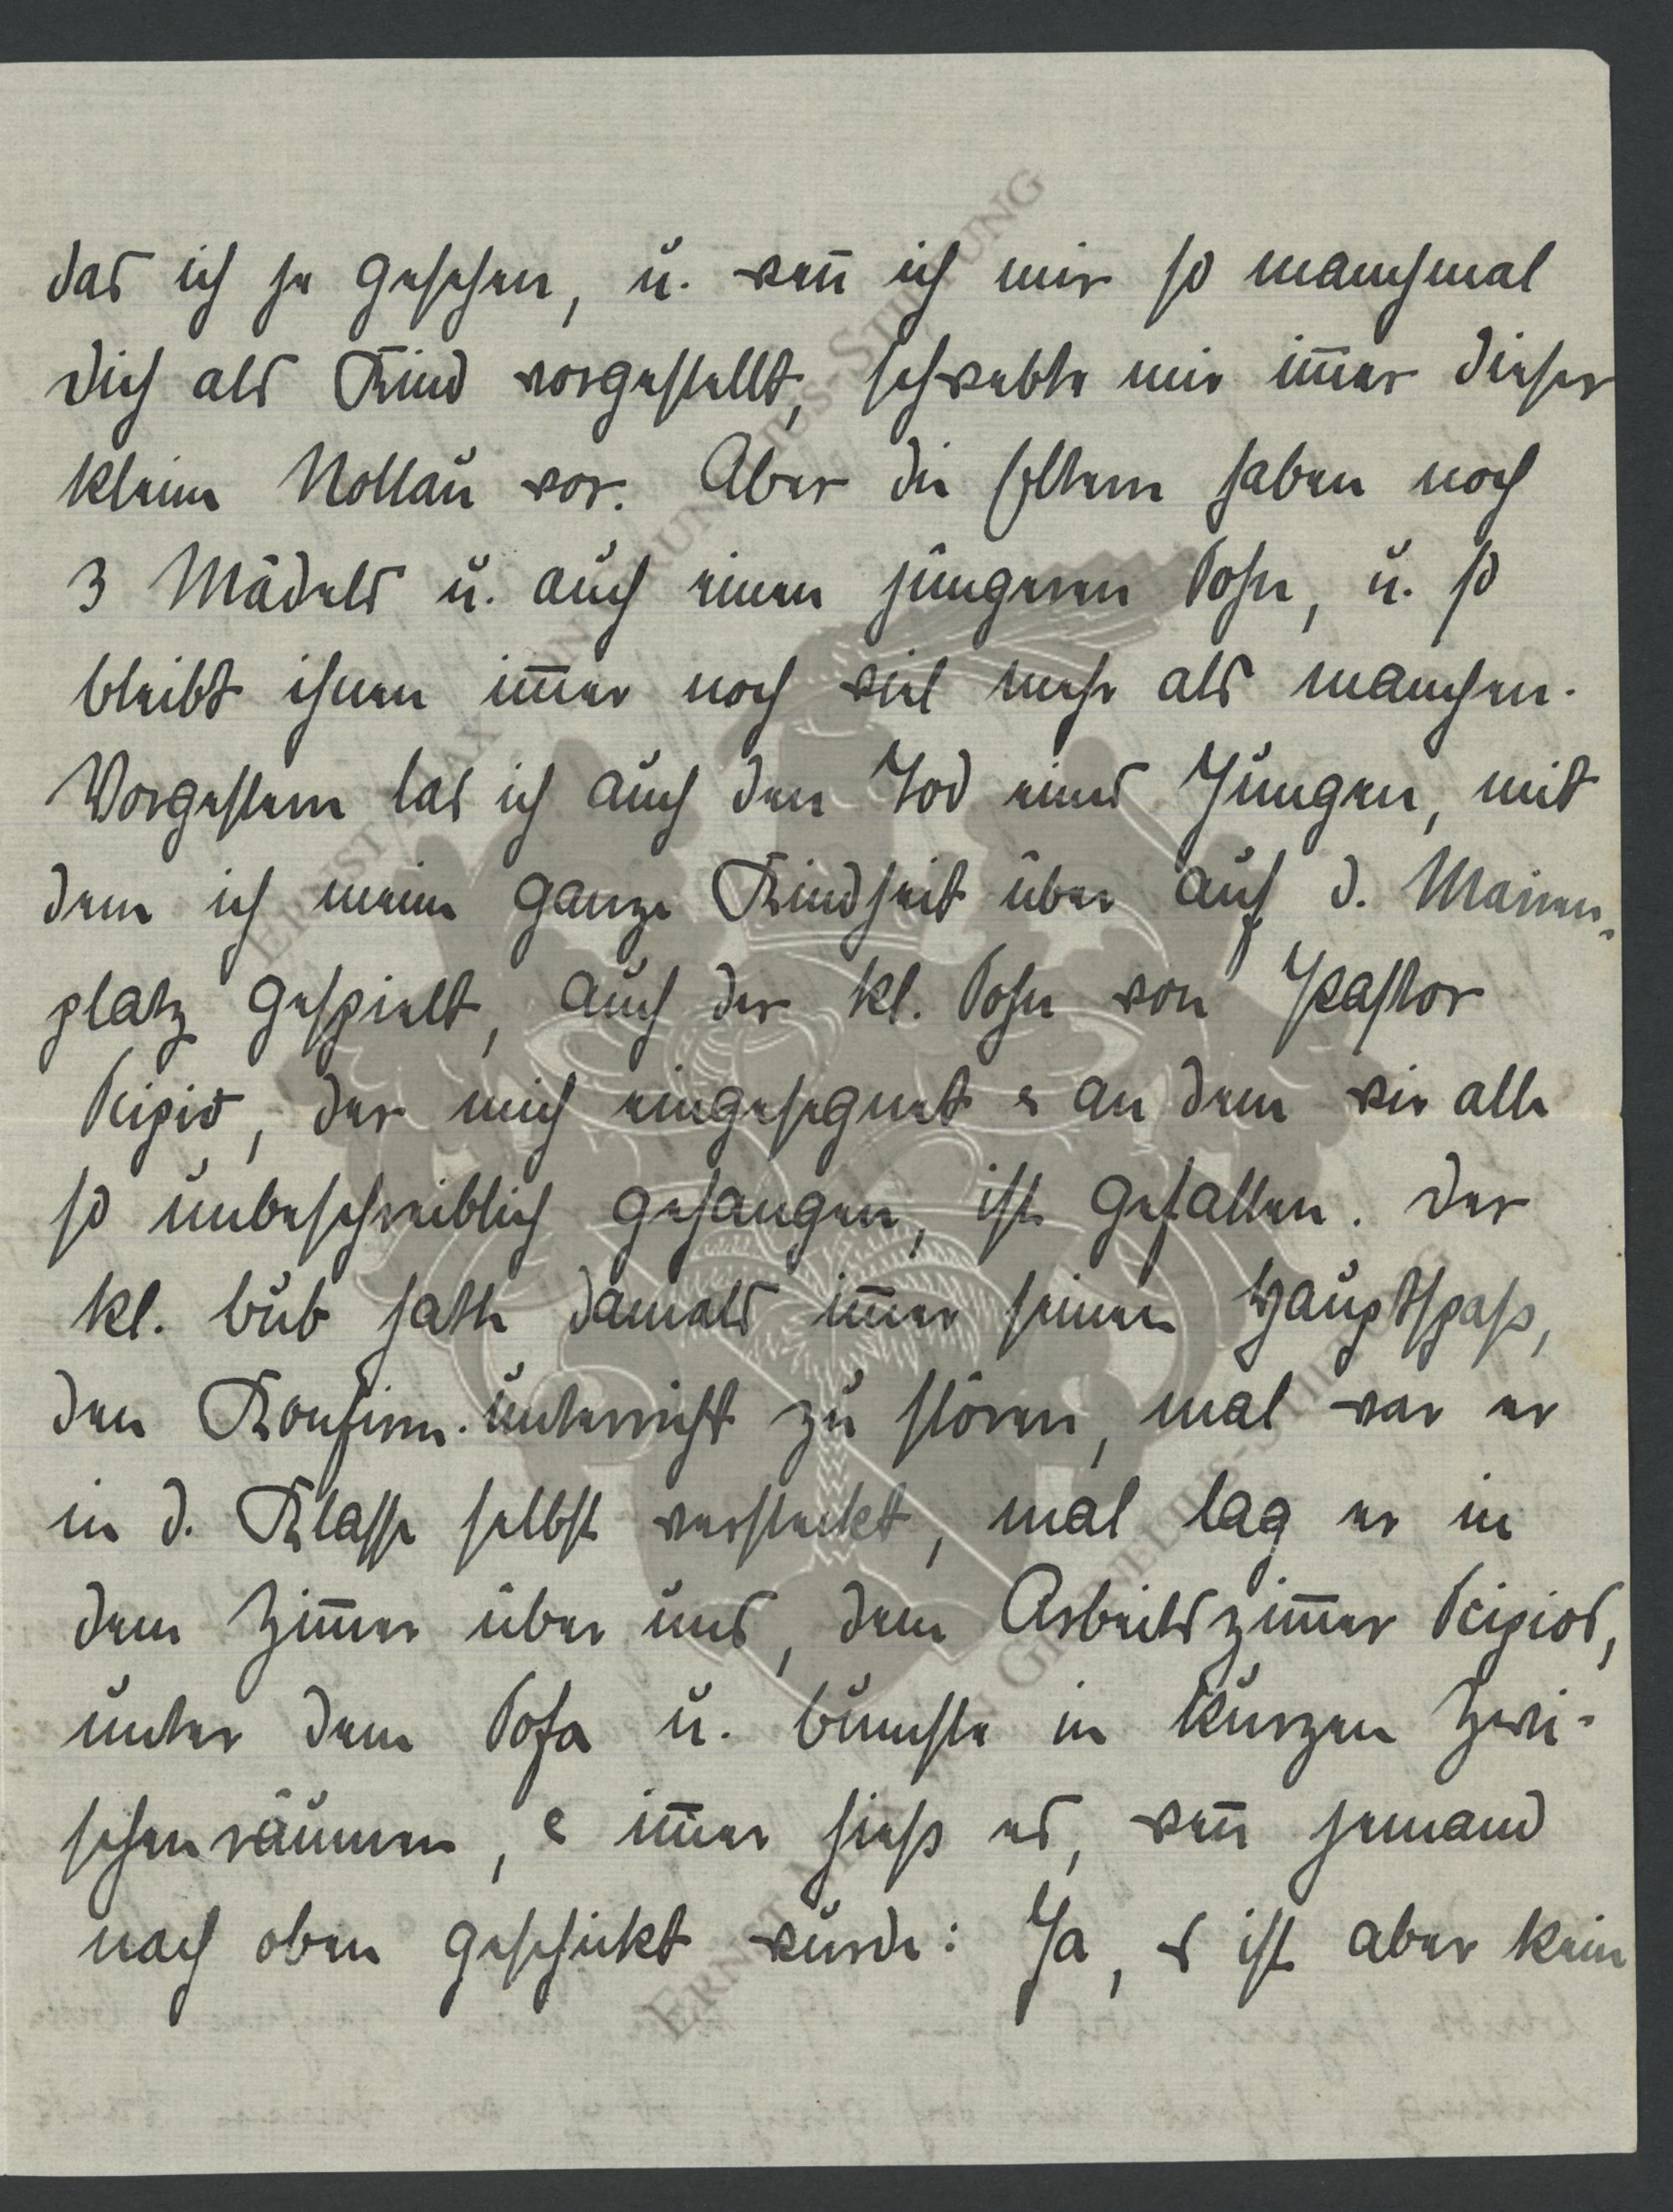 das ich je gesehen, u. weñ ich mir so manchmal
Dich als Kind vorgestellt, schwebte mir im̄er dieser
kleine Nollau vor. Aber die Eltern haben noch
3 Mädels u. auch einen jüngeren Sohn, u. so
bleibt ihnen im̄er noch viel mehr als manchen.
Vorgestern las ich auch den Tod eines Jungen, mit
dem ich meine ganze Kindheit über auf d.
platz gespielt, auch der kl. Sohn von Pastor
Scipio, der mich eingesegnet & an dem wir alle
so unbeschreiblich gehangen, ist gefallen. Der
kl. Bub hatte damals im̄er seinen Hauptspaß,
den Konfirm.unterricht zu stören, mal war er
in d. Klasse selbst versteckt, mal lag er in
dem Zim̄er über uns, dem Arbeitszim̄er Scipios,
unter dem Sofa u. bumste in kurzen Zwi-
schenräumen, & im̄er hieß es, weñ jemand
nach oben geschickt wurde: Ja, es ist aber kein
ERNST MAX VON GRUNELIUS-STIFTUNG
ERNST MAX VON GRUNELIUS-STIFTUNG